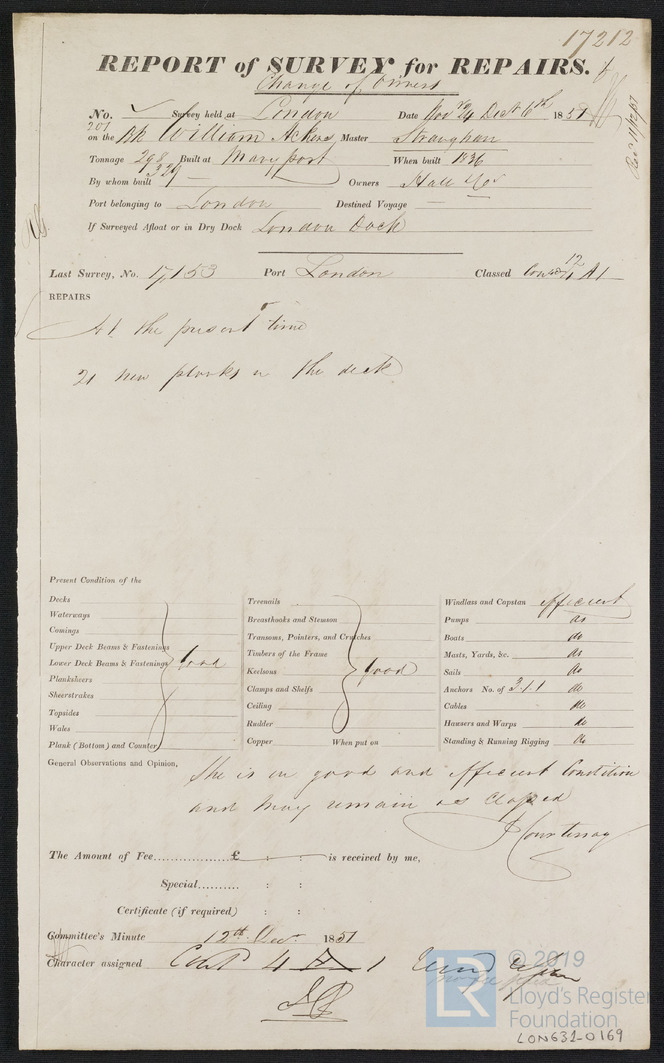 17212
REPORT of SURVEY for REPAIRS.
Change of Owners
No. Survey held at London Date Nov 24 Dect 6th 1851
201
on the Bk William Ackers Master Straughan
Tonnage 298 Built at Maryport When built 1836
329
By whom built — Owners Hall & Co
Port belonging to London Destined Voyage —
If Surveyed Afloat or in Dry Dock London Dock
Last Survey, No. 17,153 Port London Classed 12 A1
REPAIRS
At the present time
21 new planks in the deck
Present Condition of the
Decks
Waterways
Comings
Upper Deck Beams & Fastenings
Lower Deck Beams & Fastenings Good
Planksheers
Sheerstrakes
Topsides
Wales
Plank (Bottom) and Counter
Treenails
Breasthooks and Stemson
Transoms, Pointers, and Crutches
Timbers of the Frame
Keelsons Good
Clamps and Shelfs
Ceiling
Rudder
Copper When put on
Windlass and Capstan efficient
Pumps do
Boats do
Masts, Yards, &c. do
Sails do
Anchors No. of 3.1.1 do
Cables do
Hawsers and Warps do
Standing & Running Rigging do
General Observations and Opinion,
She is in good and efficient Condition
and may remain as Classed
J Courtenay
The Amount of Fee...............£ : : is received by me,
Special.......... : :
Certificate (if required) : :
Committee's Minute 12th Dec. 1851
Character assigned 4 A 1
LR
© 2019
Lloyd's Register
Foundation
LON631-0169